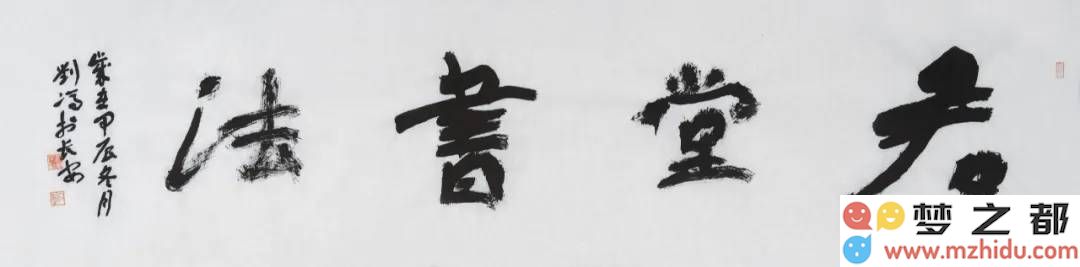 君堂書法
歲在甲辰冬月
劉馮於長安
梦之都
www.mzhidu.com